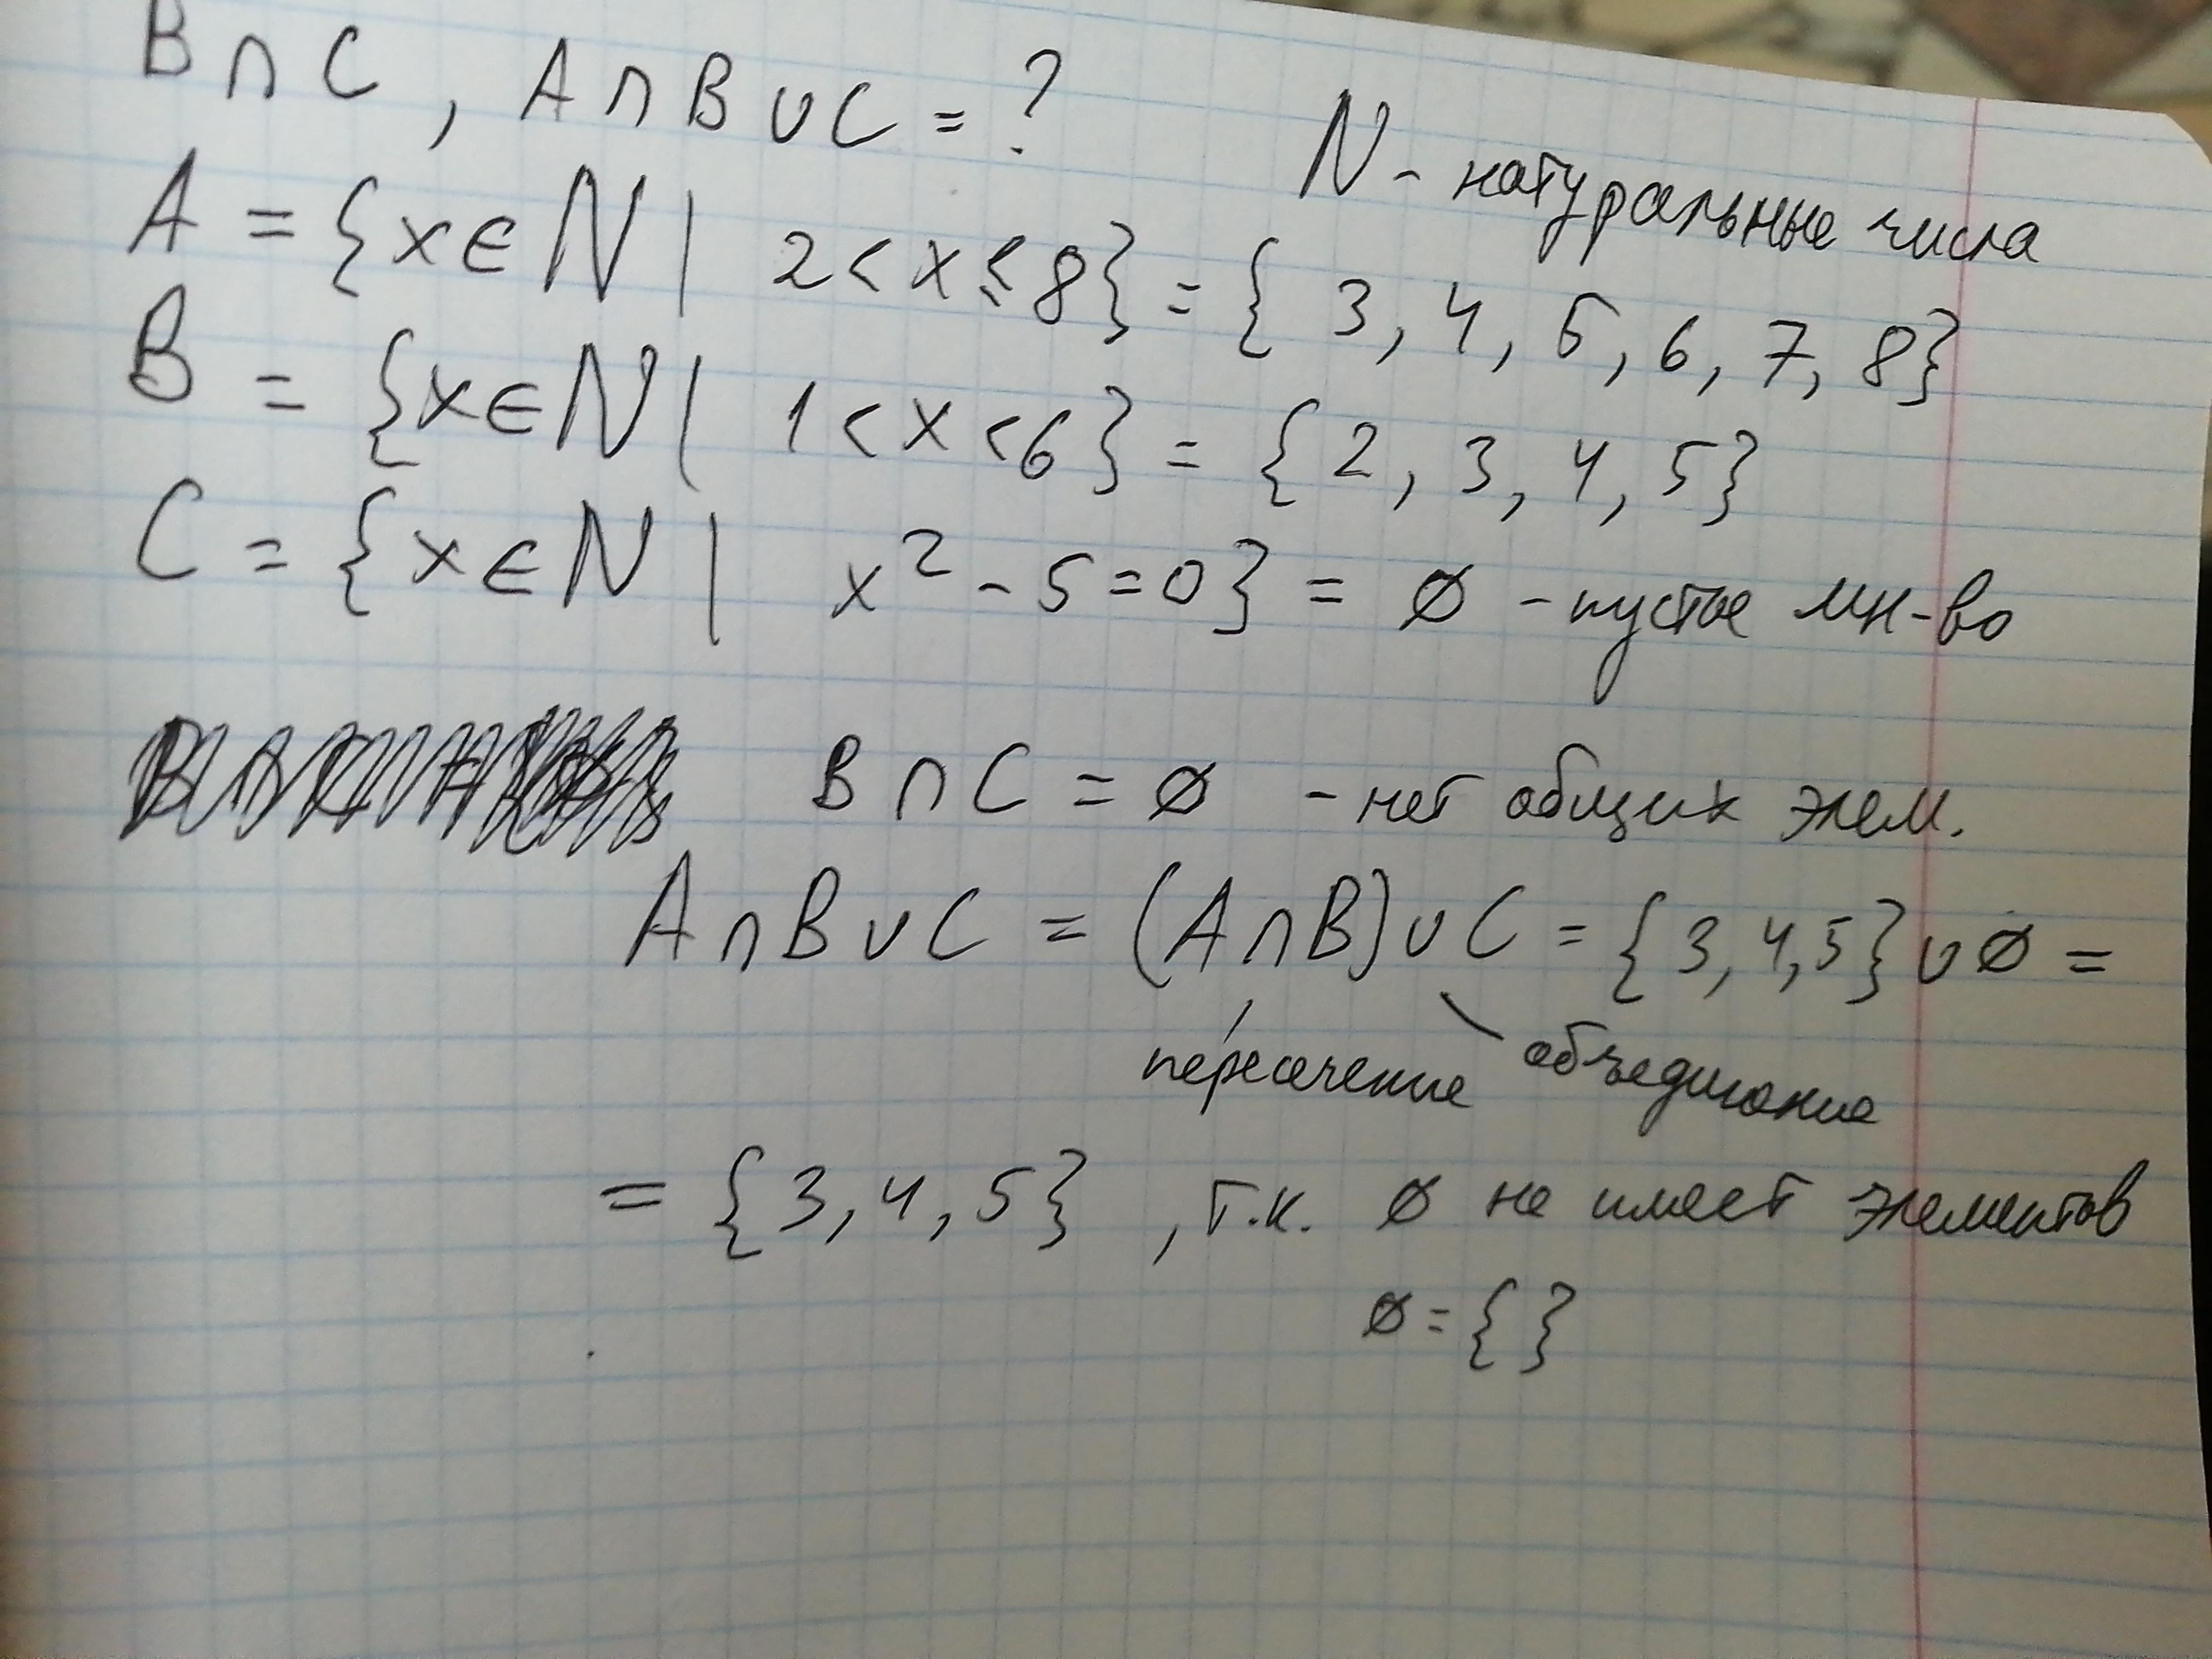 B ∩ C , A ∩ B ∪ C = ?
N - натуральные числа
A = {x ∈ N | 2 < x ≤ 8} = { 3, 4, 5, 6, 7, 8}
B = {x ∈ N | 1 < x < 6} = {2, 3, 4, 5}
C = {x ∈ N | x² - 5 = 0} = ∅ - пустое мн-во
B ∩ C = ∅ - нет общих элем.
A ∩ B ∪ C = (A ∩ B) ∪ C = {3, 4, 5} ∪ ∅ =
пересечение объединение
= {3, 4, 5} , т.к. ∅ не имеет элементов
∅ = { }